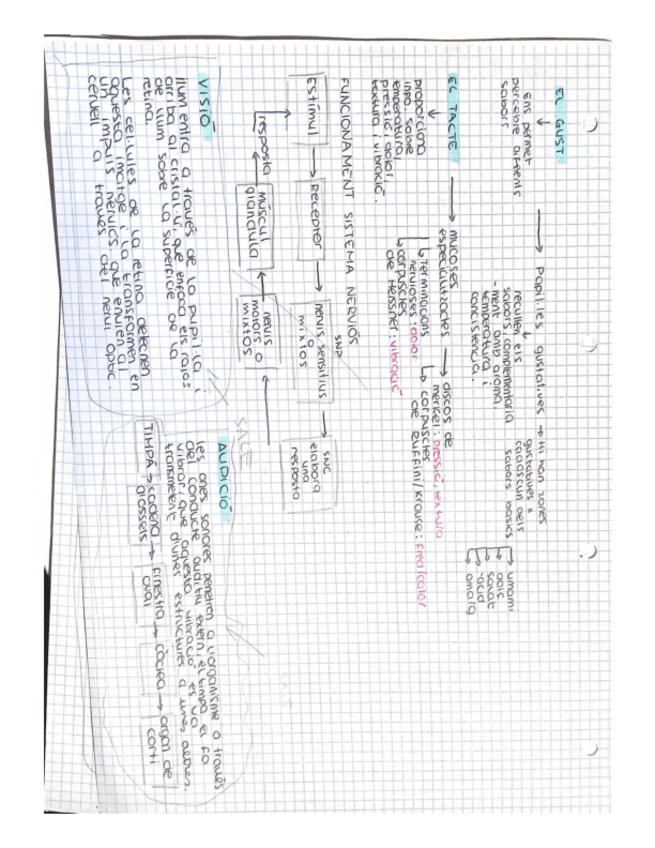 EL GUST
Ens permet
percebre diferents
sabors
Papil·les gustatives → Hi han zones
gustatives x
cadascun dels
sabors bàsics
umami
dolç
salat
àcid
amarg
recullen els
sabors complementaria
-ment amb aroma,
temperatura i
consistència.
EL TACTE → mucoses
especialitzades → discos de
merkel: pressió, textura
proporciona
info. sobre
temperatura,
pressió, dolor,
textura i vibració.
Terminacions
nervioses: dolor
corpuscles
de Meissner: vibració
corpuscles
de Ruffini/Krause: fred/calor
FUNCIONAMENT SISTEMA NERVIÓS
SNP
Estímul → Receptor → nervis sensitius
o
mixtos
SNC
elabora
una
resposta
resposta
múscul
glàndula
nervis
motors o
mixtos
VISIÓ
llum entra a través de la pupil·la i
arriba al cristal·lí, que enfoca els raios
de llum sobre la superfície de la
retina.
Les cèl·lules de la retina detecnen
aquesta imatge i la transformen en
un impuls nerviós que envien al
cervell a través del nervi òptic.
AUDICIÓ
les ones sonores penetren a l'organisme a través
del conducte auditiu extern, el timpà el fa
vibrar, que aquesta vibració es va
transmetent d'unes estructures a unes altres.
TIMPÀ → cadena → finestra → còclea → orgon de
ossets oval corti